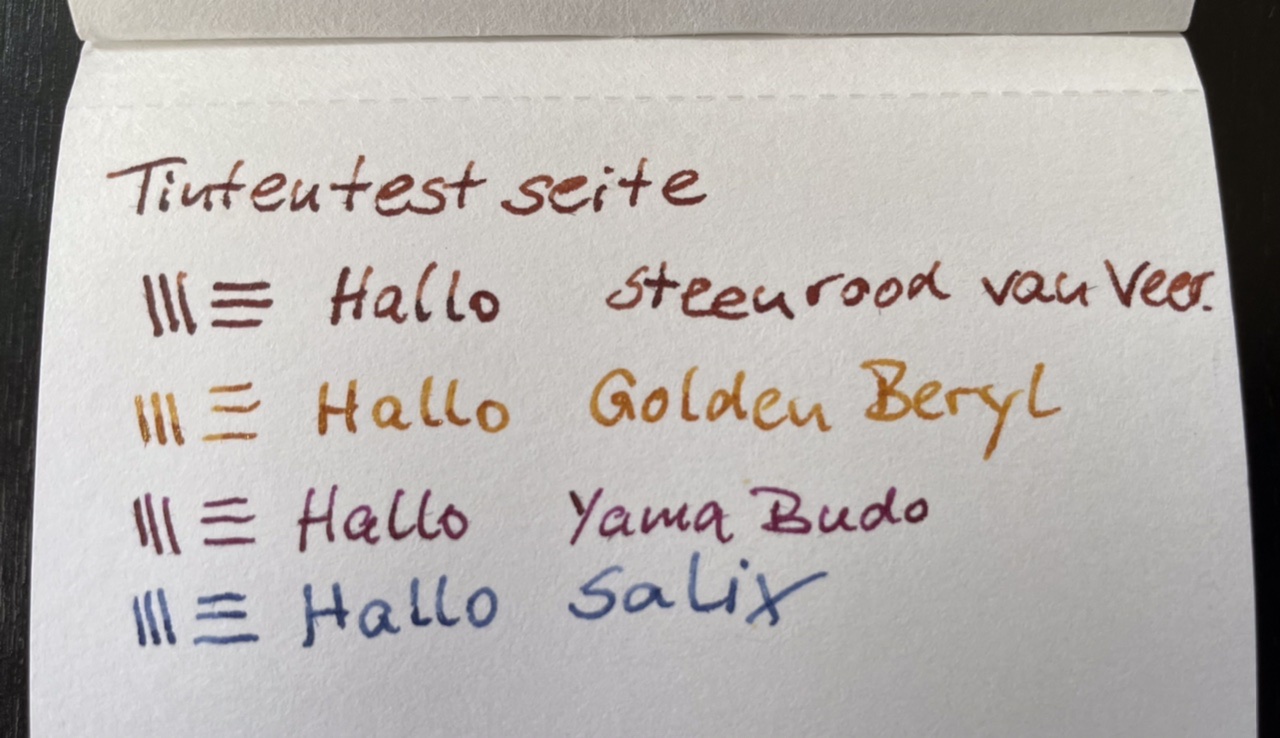 Tintentest seite
Hallo Steenrood van Veer.
Hallo Golden Beryl
Hallo Yama Budo
Hallo Salix